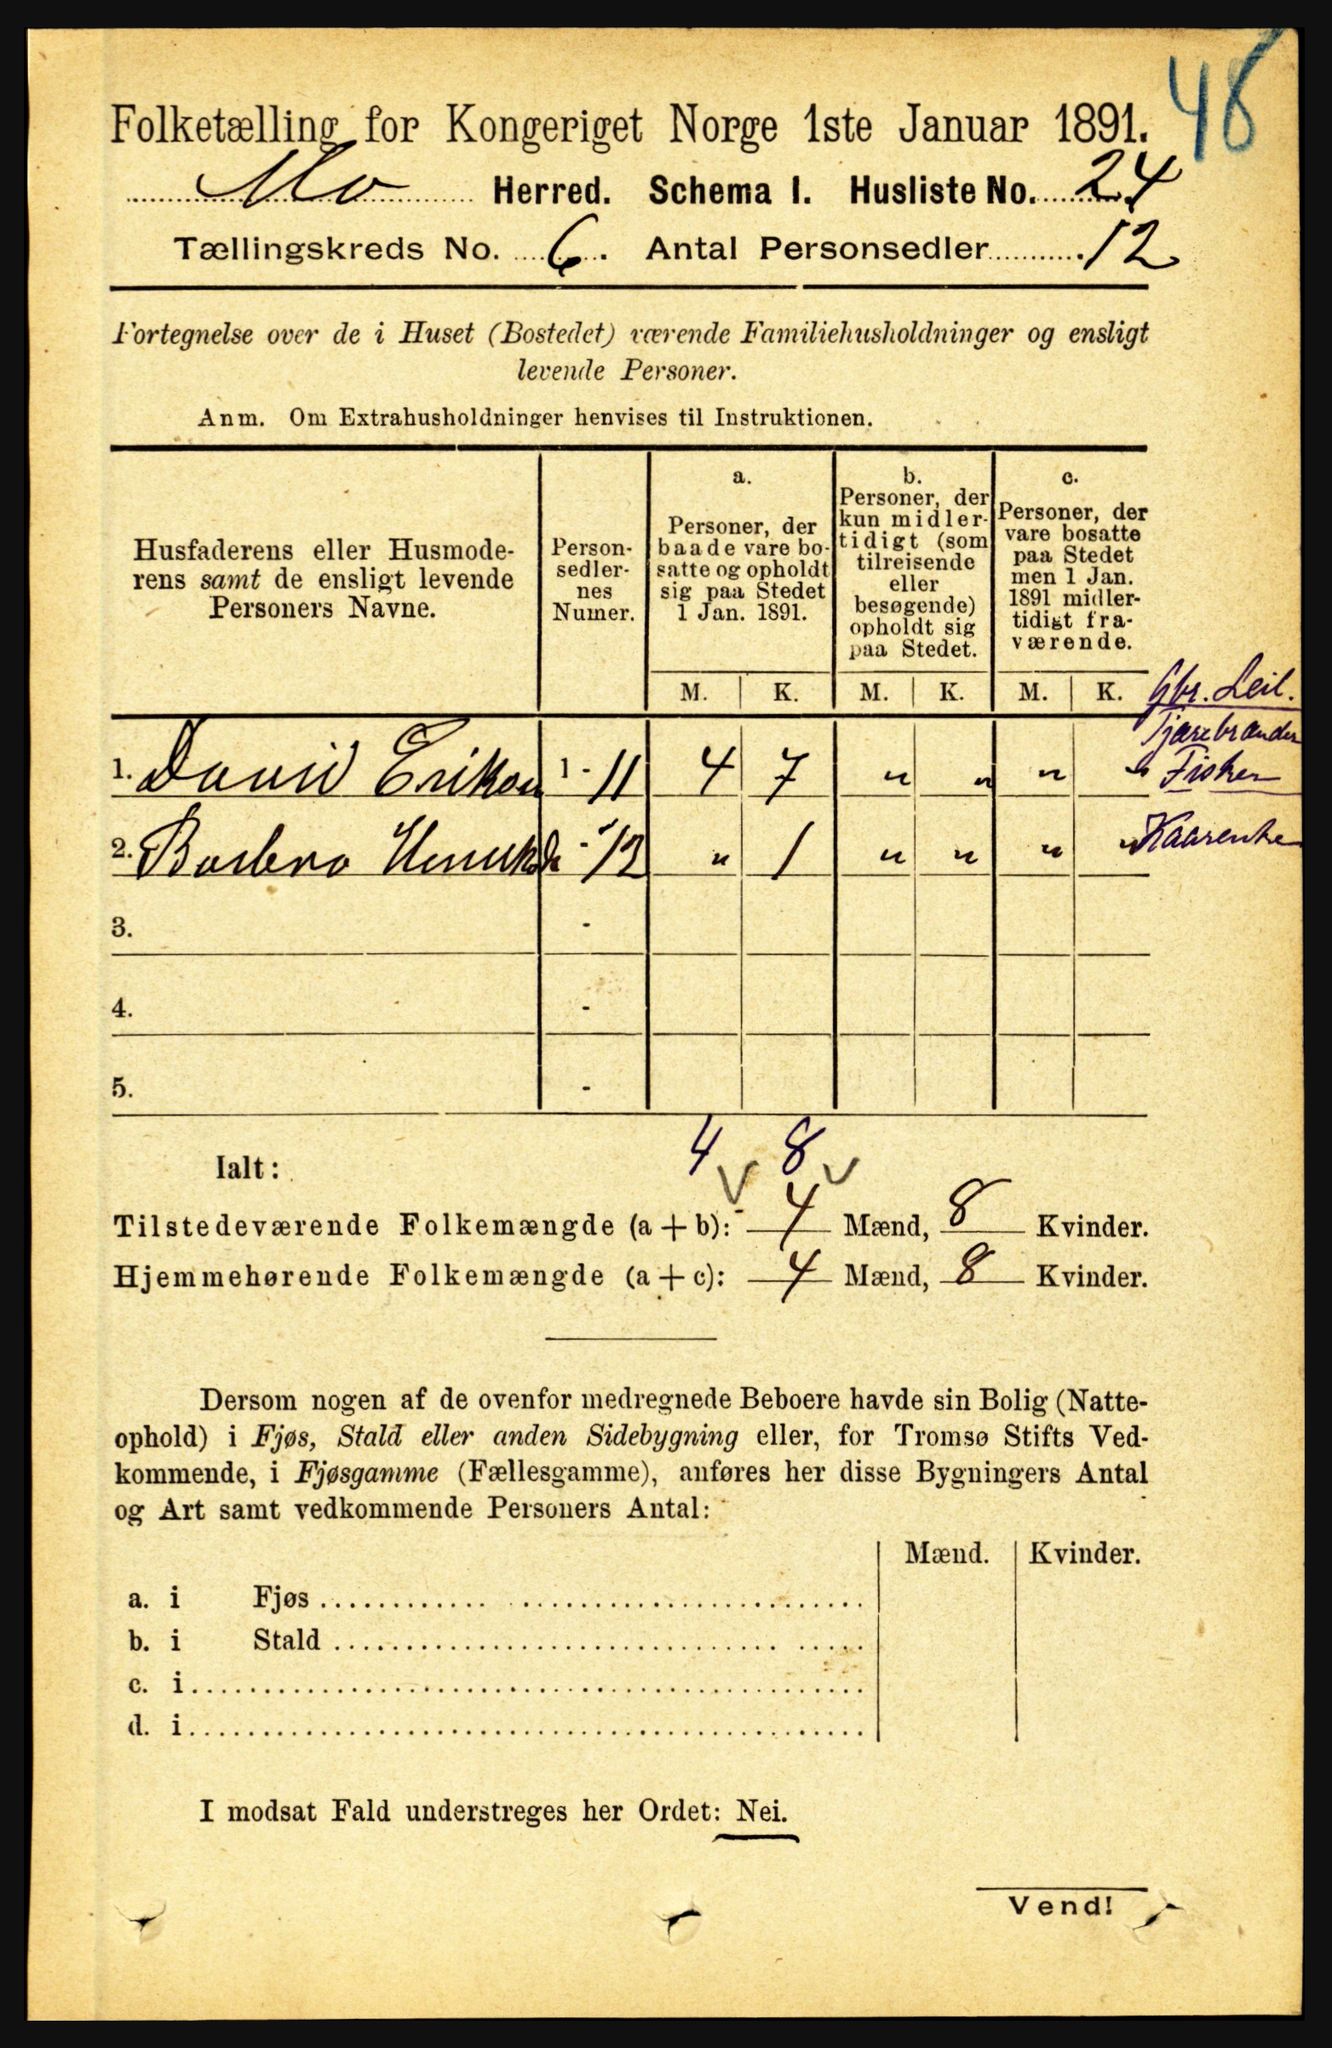 48
Folketælling for Kongeriget Norge 1ste Januar 1891.
Mo Herred. Schema I. Husliste No. 24
Tællingskreds No. 6. Antal Personsedler 12
Fortegnelse over de i Huset (Bostedet) værende Familiehusholdninger og ensligt
levende Personer.
Anm. Om Extrahusholdninger henvises til Instruktionen.
Husfaderens eller Husmode-
rens samt de ensligt levende
Personers Navne.
Person-
sedler-
nes
Numer.
a.
Personer, der
baade vare bo-
satte og opholdt
sig paa Stedet
1 Jan. 1891.
b.
Personer, der
kun midler-
tidigt (som
tilreisende
eller
besøgende)
opholdt sig
paa Stedet.
c.
Personer, der
vare bosatte
paa Stedet
men 1 Jan.
1891 midler-
tidigt fra-
værende.
M. K. M. K. M. K.
Gbr. Leil.
Tjærebrænder
1. David Eriksen 1 - 11 4 7 " " " " Fisker
2. Barbro Henriksd - 12 " 1 " " " " Kaarenke
3. -
4. -
5. -
4 8
Ialt:
Tilstedeværende Folkemængde (a + b): 4 Mænd, 8 Kvinder.
Hjemmehørende Folkemængde (a + c): 4 Mænd, 8 Kvinder.
Dersom nogen af de ovenfor medregnede Beboere havde sin Bolig (Natte-
ophold) i Fjøs, Stald eller anden Sidebygning eller, for Tromsø Stifts Ved-
kommende, i Fjøsgamme (Fællesgamme), anføres her disse Bygningers Antal
og Art samt vedkommende Personers Antal:
Mænd. Kvinder.
a. i Fjøs
b. i Stald
c. i
d. i
I modsat Fald understreges her Ordet: Nei.
Vend!